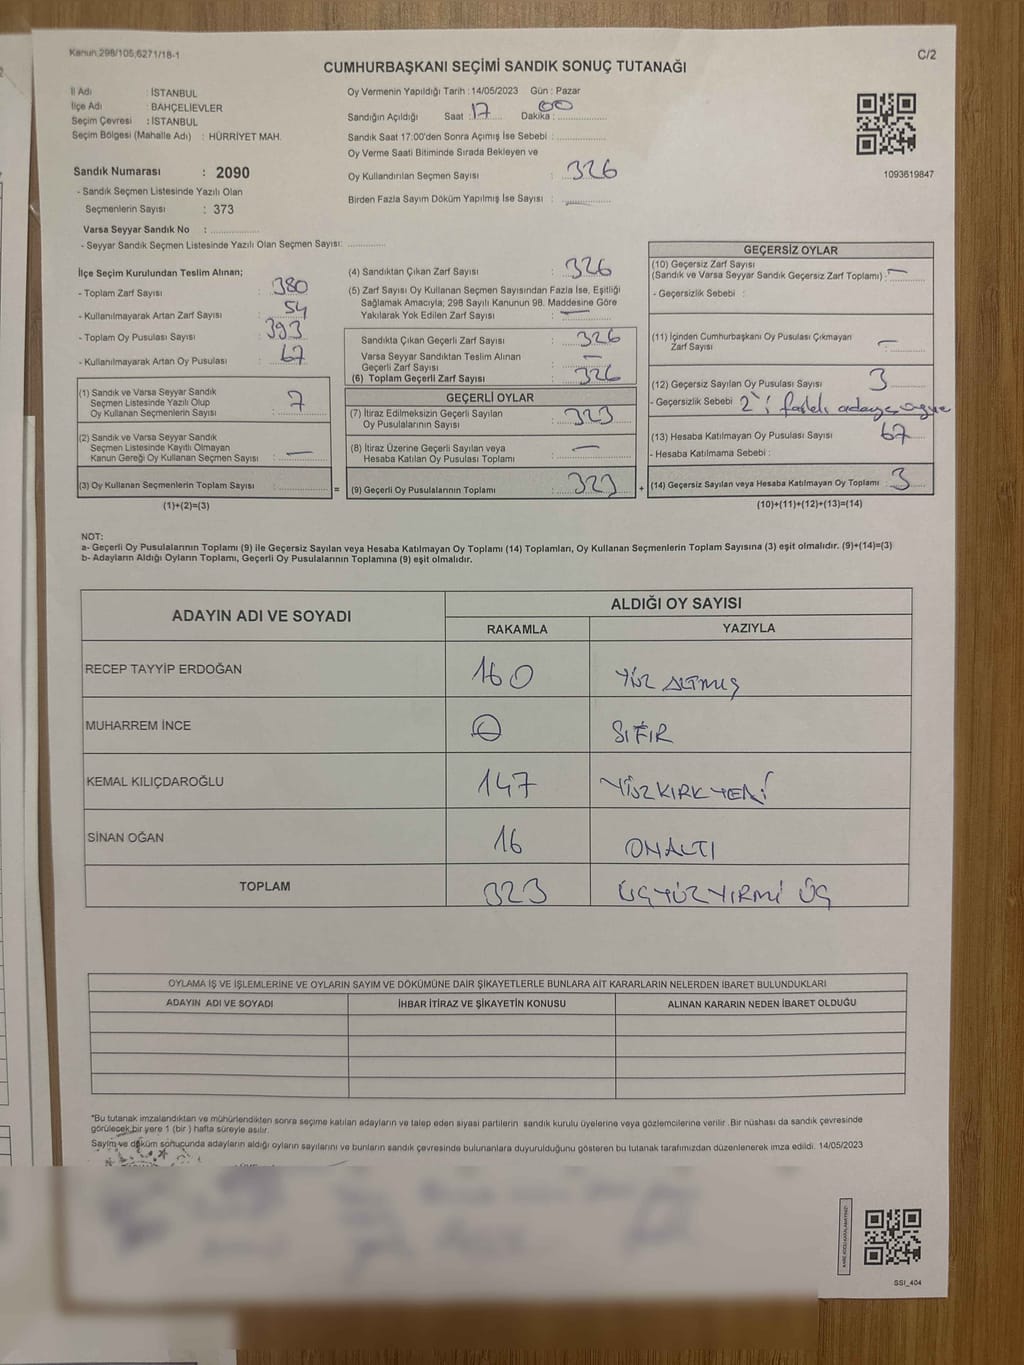 Kanun,298/105,6271/18-1
C/2
CUMHURBAŞKANI SEÇİMİ SANDIK SONUÇ TUTANAĞI
İl Adı : İSTANBUL
İlçe Adı : BAHÇELİEVLER
Seçim Çevresi : İSTANBUL
Seçim Bölgesi (Mahalle Adı) : HÜRRİYET MAH.
Sandık Numarası : 2090
- Sandık Seçmen Listesinde Yazılı Olan
Seçmenlerin Sayısı : 373
Varsa Seyyar Sandık No :
- Seyyar Sandık Seçmen Listesinde Yazılı Olan Seçmen Sayısı:
Oy Vermenin Yapıldığı Tarih : 14/05/2023 Gün : Pazar
Sandığın Açıldığı Saat : 17 Dakika : 00
Sandık Saat 17:00'den Sonra Açımış İse Sebebi :
Oy Verme Saati Bitiminde Sırada Bekleyen ve
Oy Kullandırılan Seçmen Sayısı : 326
Birden Fazla Sayım Döküm Yapılmış İse Sayısı :
1093619847
İlçe Seçim Kurulundan Teslim Alınan;
- Toplam Zarf Sayısı : 380
- Kullanılmayarak Artan Zarf Sayısı : 54
- Toplam Oy Pusulası Sayısı : 393
- Kullanılmayarak Artan Oy Pusulası : 67
(1) Sandık ve Varsa Seyyar Sandık
Seçmen Listesinde Yazılı Olup
Oy Kullanan Seçmenlerin Sayısı : 7
(2) Sandık ve Varsa Seyyar Sandık
Seçmen Listesinde Kayıtlı Olmayan
Kanun Gereği Oy Kullanan Seçmen Sayısı : —
(3) Oy Kullanan Seçmenlerin Toplam Sayısı :
(1)+(2)=(3)
(4) Sandıktan Çıkan Zarf Sayısı : 326
(5) Zarf Sayısı Oy Kullanan Seçmen Sayısından Fazla İse, Eşitliği
Sağlamak Amacıyla; 298 Sayılı Kanunun 98. Maddesine Göre
Yakılarak Yok Edilen Zarf Sayısı : —
Sandıkta Çıkan Geçerli Zarf Sayısı : 326
Varsa Seyyar Sandıktan Teslim Alınan
Geçerli Zarf Sayısı : —
(6) Toplam Geçerli Zarf Sayısı : 326
GEÇERLİ OYLAR
(7) İtiraz Edilmeksizin Geçerli Sayılan
Oy Pusulalarının Sayısı : 323
(8) İtiraz Üzerine Geçerli Sayılan veya
Hesaba Katılan Oy Pusulası Toplamı : —
= (9) Geçerli Oy Pusulalarının Toplamı : 323 +
GEÇERSİZ OYLAR
(10) Geçersiz Zarf Sayısı
(Sandık ve Varsa Seyyar Sandık Geçersiz Zarf Toplamı) : —
- Geçersizlik Sebebi :
(11) İçinden Cumhurbaşkanı Oy Pusulası Çıkmayan
Zarf Sayısı : —
(12) Geçersiz Sayılan Oy Pusulası Sayısı : 3
- Geçersizlik Sebebi : 2'i farklı adaya
(13) Hesaba Katılmayan Oy Pusulası Sayısı : 67
- Hesaba Katılmama Sebebi :
(14) Geçersiz Sayılan veya Hesaba Katılmayan Oy Toplamı : 3
(10)+(11)+(12)+(13)=(14)
NOT:
a- Geçerli Oy Pusulalarının Toplamı (9) ile Geçersiz Sayılan veya Hesaba Katılmayan Oy Toplamı (14) Toplamları, Oy Kullanan Seçmenlerin Toplam Sayısına (3) eşit olmalıdır. (9)+(14)=(3)
b- Adayların Aldığı Oyların Toplamı, Geçerli Oy Pusulalarının Toplamına (9) eşit olmalıdır.
ADAYIN ADI VE SOYADI ALDIĞI OY SAYISI
RAKAMLA YAZIYLA
RECEP TAYYİP ERDOĞAN 160 YÜZ ALTMIŞ
MUHARREM İNCE 0 SIFIR
KEMAL KILIÇDAROĞLU 147 YÜZ KIRK YEDİ
SİNAN OĞAN 16 ONALTI
TOPLAM 323 ÜÇ YÜZ YİRMİ ÜÇ
OYLAMA İŞ VE İŞLEMLERİNE VE OYLARIN SAYIM VE DÖKÜMÜNE DAİR ŞİKAYETLERLE BUNLARA AİT KARARLARIN NELERDEN İBARET BULUNDUKLARI
ADAYIN ADI VE SOYADI İHBAR İTİRAZ VE ŞİKAYETİN KONUSU ALINAN KARARIN NEDEN İBARET OLDUĞU
*Bu tutanak imzalandıktan ve mühürlendikten sonra seçime katılan adayların ve talep eden siyasi partilerin sandık kurulu üyelerine veya gözlemcilerine verilir. Bir nüshası da sandık çevresinde
görülecek bir yere 1 (bir ) hafta süreyle asılır.
Sayım ve döküm sonucunda adayların aldığı oyların sayılarını ve bunların sandık çevresinde bulunanlara duyurulduğunu gösteren bu tutanak tarafımızdan düzenlenerek imza edildi. 14/05/2023
SSI_404